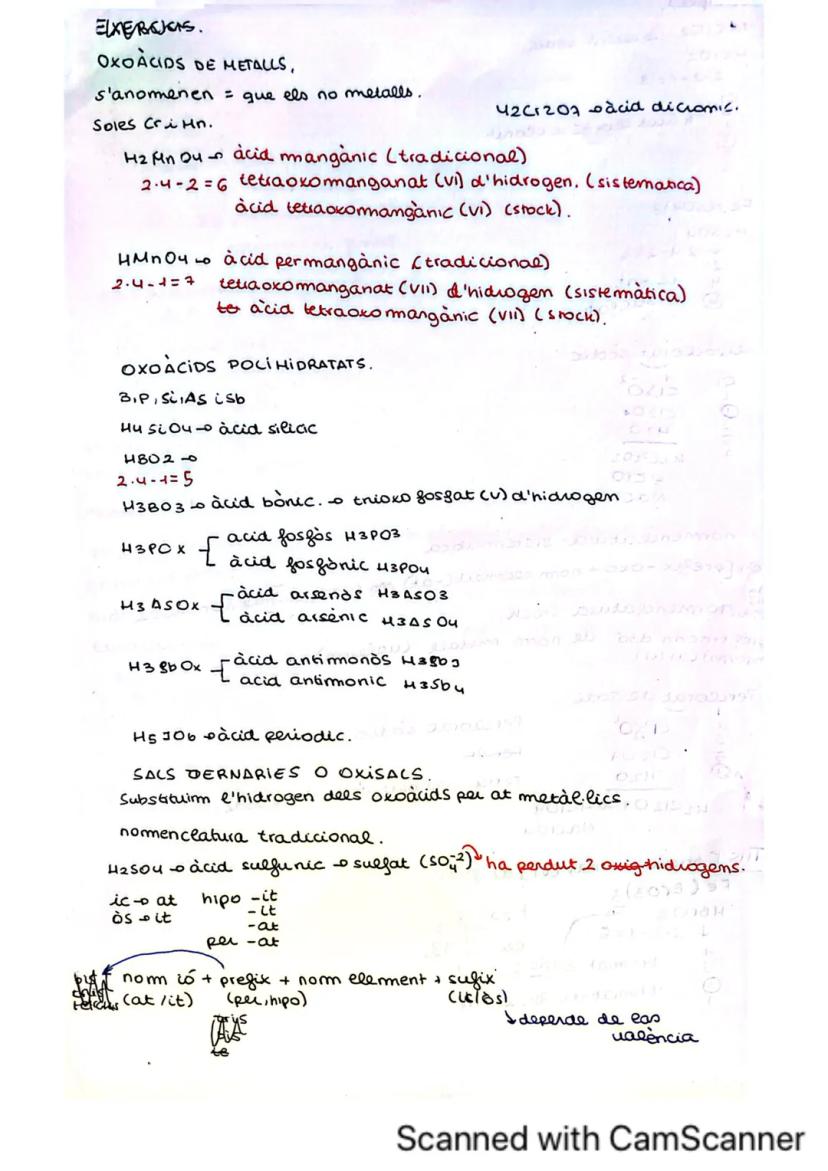 EXERCICIS.
OXOÀCIDS DE METALLS,
s'anomenen = que els no metalls.
H2Cr2O7 → àcid dicromic.
Soles Cr i Mn.
H2MnO4 → àcid mangànic (tradicional)
2·4-2=6 tetraoxomanganat (VI) d'hidrogen. (sistematica)
àcid tetraoxomangànic (VI) (stock).
HMnO4 → àcid permangànic (tradicional)
2·4-1=7 tetraoxomanganat (VII) d'hidrogen (sistemàtica)
àcid tetraoxomangànic (VII) (stock).
OXOÀCIDS POLIHIDRATATS.
B, P, Si, As i Sb
H4SiO4 → àcid silicic
HBO2 →
2·4-1=5
H3BO3 → àcid bòric. → trioxo fosfat (V) d'hidrogen
H3POx { acid fosfòs H3PO3
àcid fosfònic H3PO4
H3AsOx { àcid arsenòs H3AsO3
àcid arsènic H3AsO4
H3SbOx { àcid antimonòs H3Sb3
acid antimonic H3Sb4
H5IO6 → àcid periodic.
SALS TERNARIES O OXISALS.
Substituim l'hidrogen dels oxoàcids per at metàl·lics.
nomenclatura tradicional.
H2SO4 → àcid sulfuric → sulfat (SO4-2) ha perdut 2 hidrogens.
ic → at hipo -it
òs → it -it
-at
per -at
nom ió + prefix + nom element + sufix
(at/it) (per, hipo) (ic/òs)
↘ depende de las
valència
Scanned with CamScanner